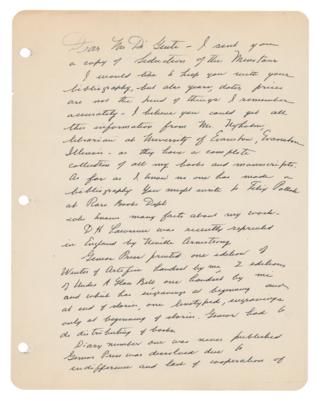 Dear Mr De Geste - I sent you
a copy of Seduction of the Minotaur
I would like to help you with your
bibliography, but also years, dates prices
are not the kind of things I remember
accurately - I believe you could get all
this information from Mr. Nyholm,
librarian at University of Evanston, Evanston
Illinois - as they have a complete
collection of all my books and manuscripts.
As far as I know no one has made a
bibliography You might write to Felix Pollak
at Rare Books Dept
who knows many facts about my work.
D.H. Lawrence was recently reprinted
in England by Neville Armstrong
Gemor Press printed one edition of
Winter of Artifice handset by me, 2 editions
of Under A Glass Bell one handset by me
and which has engravings at beginning and
at end of stories, one linotyped, engravings
only at beginning of stories. Gemor had to
do distributing of books
Diary number one was never published
Gemor Press was dissolved due to
indifference and lack of cooperation of